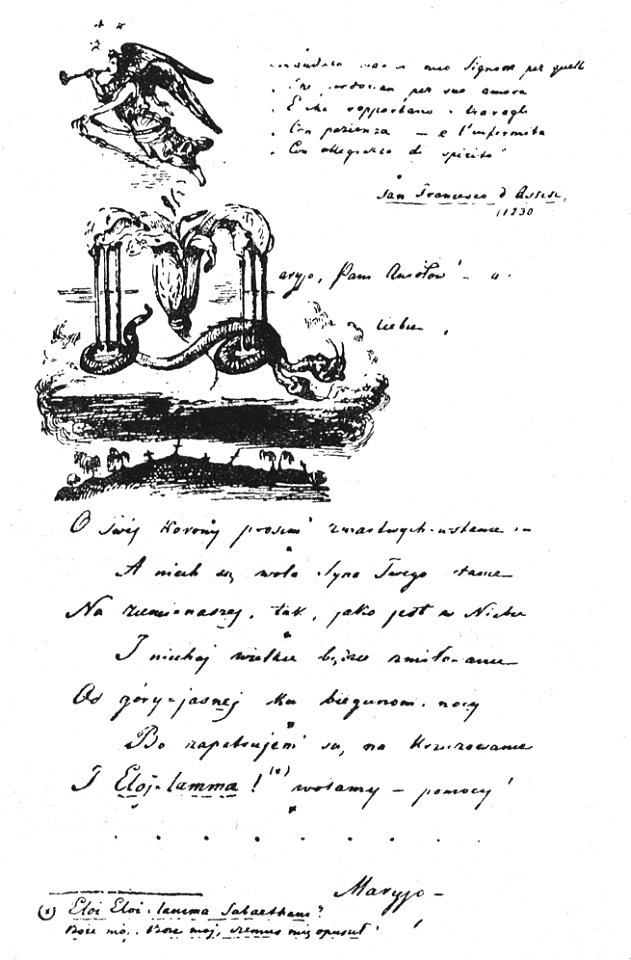 mio Signore per quelli
Che perdonan per suo amore
E che sopportano i travagli
Con pazienza — e l'infermita
Con allegrezza di spirito"
San Francesco d'Assisi,
1230
aryjo, Pani Aniołów! — u
Ciebie,
O Twej Korony prosim zmartwychwstanie —
A niech się wola Syna Twego stanie
Na ziemi naszej, tak, jako jest w Niebie
I niechaj wielkie będzie zmiłowanie
Od góry-jasnej ku biegunom nocy
Bo zapatrujem są, na Krzyżowanie
I Eloj-lamma! (x) wołamy — pomocy!
. . . . . . . . .
Maryjo —
(x) Eloi Eloi lamma Sabacthani?
Boże mój, Boże mój, czemuś mię opuścił!